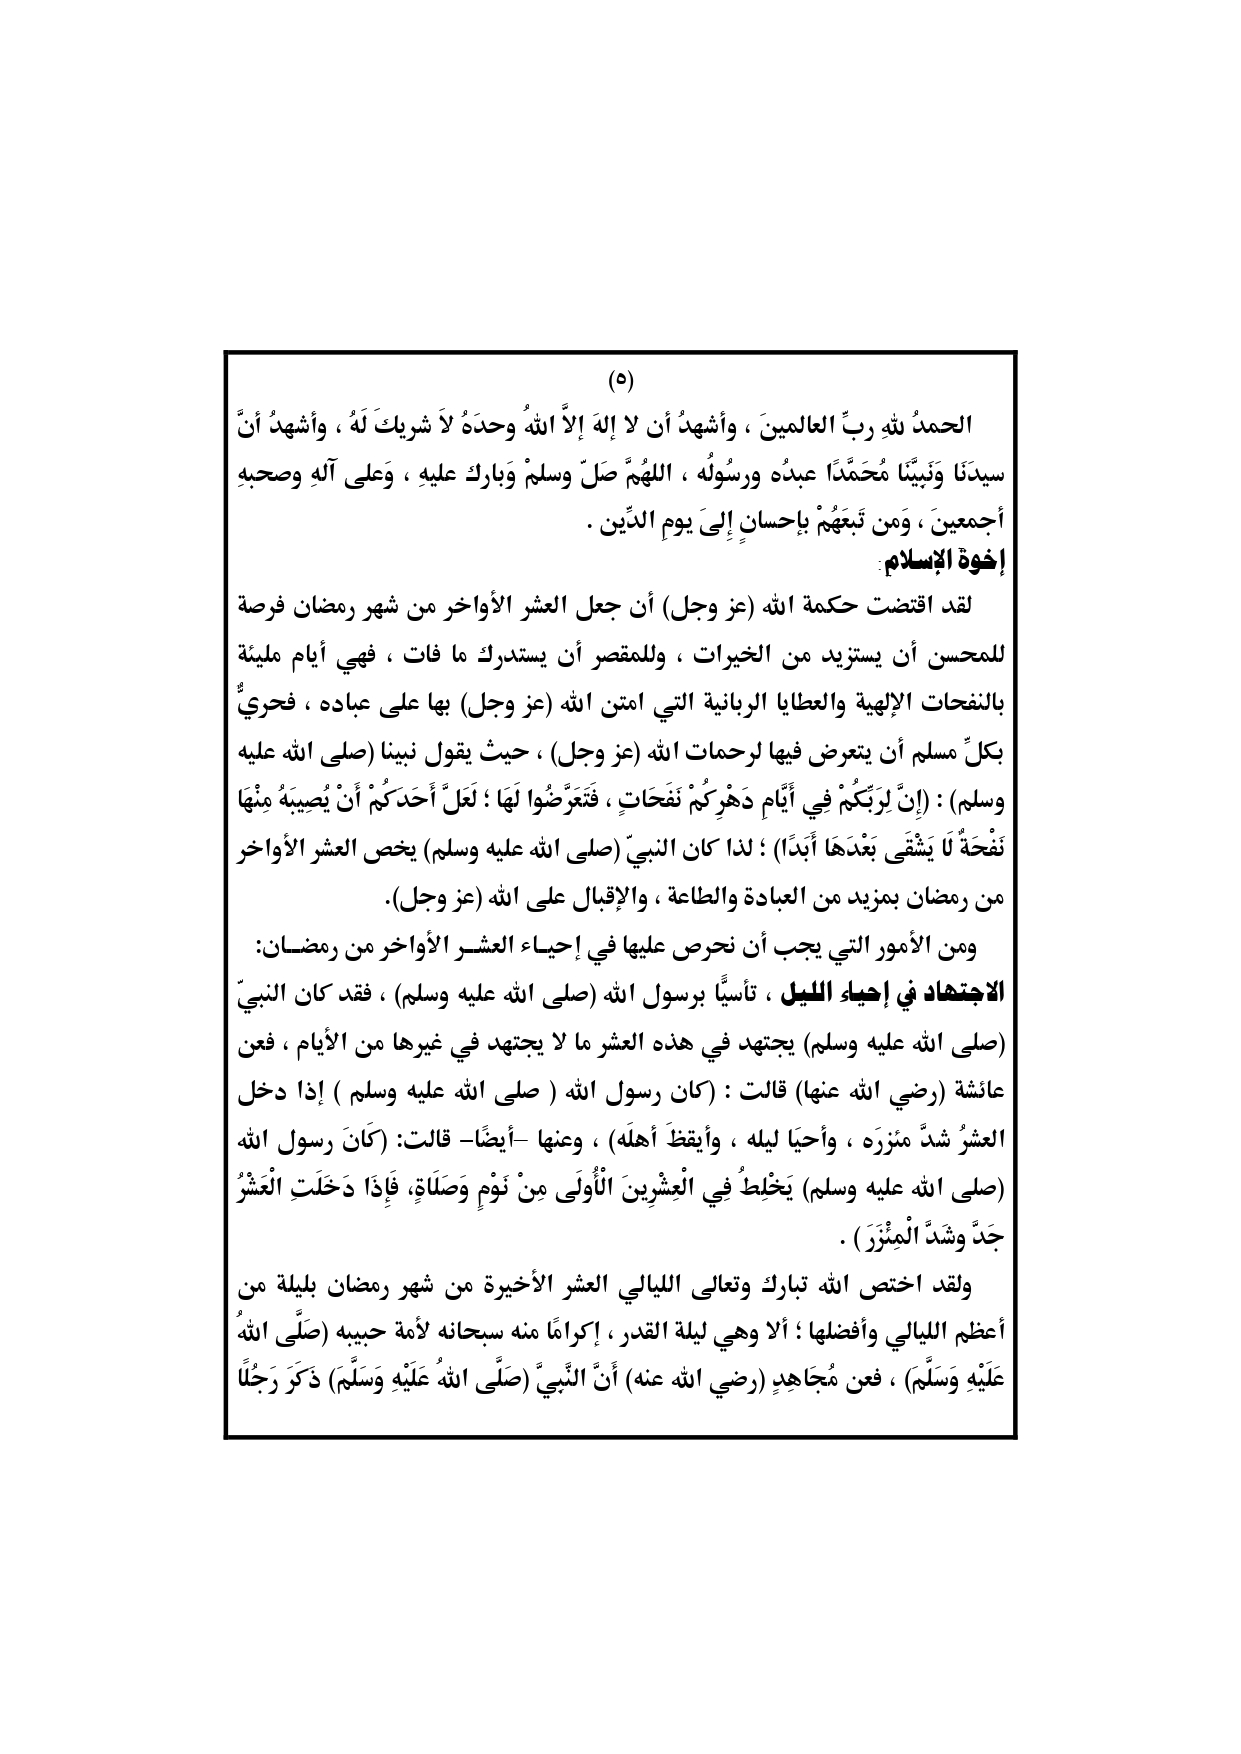 (٥)
الحمدُ للهِ ربِّ العالمينَ ، وأشهدُ أن لا إلهَ إلاَّ اللهُ وحدَهُ لاَ شريكَ لَهُ ، وأشهدُ أنَّ
سيدَنَا وَنَبِيَّنَا مُحَمَّدًا عبدُه ورسُولُه ، اللهُمَّ صَلّ وسلمْ وَبارك عليهِ ، وَعلى آلهِ وصحبهِ
أجمعينَ ، وَمن تَبعَهُمْ بإحسانٍ إِلىَ يومِ الدِّين .
إخوة الإسلام:
لقد اقتضت حكمة الله (عز وجل) أن جعل العشر الأواخر من شهر رمضان فرصة
للمحسن أن يستزيد من الخيرات ، وللمقصر أن يستدرك ما فات ، فهي أيام مليئة
بالنفحات الإلهية والعطايا الربانية التي امتن الله (عز وجل) بها على عباده ، فحريٌّ
بكلِّ مسلم أن يتعرض فيها لرحمات الله (عز وجل) ، حيث يقول نبينا (صلى الله عليه
وسلم) : (إِنَّ لِرَبِّكُمْ فِي أَيَّامِ دَهْرِكُمْ نَفَحَاتٍ ، فَتَعَرَّضُوا لَهَا ؛ لَعَلَّ أَحَدَكُمْ أَنْ يُصِيبَهُ مِنْهَا
نَفْحَةٌ لَا يَشْقَى بَعْدَهَا أَبَدًا) ؛ لذا كان النبيّ (صلى الله عليه وسلم) يخص العشر الأواخر
من رمضان بمزيد من العبادة والطاعة ، والإقبال على الله (عز وجل).
ومن الأمور التي يجب أن نحرص عليها في إحيـاء العشـر الأواخر من رمضـان:
الاجتهاد في إحياء الليل ، تأسيًّا برسول الله (صلى الله عليه وسلم) ، فقد كان النبيّ
(صلى الله عليه وسلم) يجتهد في هذه العشر ما لا يجتهد في غيرها من الأيام ، فعن
عائشة (رضي الله عنها) قالت : (كان رسول الله ( صلى الله عليه وسلم ) إذا دخل
العشرُ شدَّ مئزرَه ، وأحيَا ليله ، وأيقظَ أهلَه) ، وعنها –أيضًا– قالت: (كَانَ رسول الله
(صلى الله عليه وسلم) يَخْلِطُ فِي الْعِشْرِينَ الْأُولَى مِنْ نَوْمٍ وَصَلَاةٍ، فَإِذَا دَخَلَتِ الْعَشْرُ
جَدَّ وشَدَّ الْمِئْزَرَ ) .
ولقد اختص الله تبارك وتعالى الليالي العشر الأخيرة من شهر رمضان بليلة من
أعظم الليالي وأفضلها ؛ ألا وهي ليلة القدر ، إكرامًا منه سبحانه لأمة حبيبه (صَلَّى اللهُ
عَلَيْهِ وَسَلَّمَ) ، فعن مُجَاهِدٍ (رضي الله عنه) أَنَّ النَّبِيَّ (صَلَّى اللهُ عَلَيْهِ وَسَلَّمَ) ذَكَرَ رَجُلًا